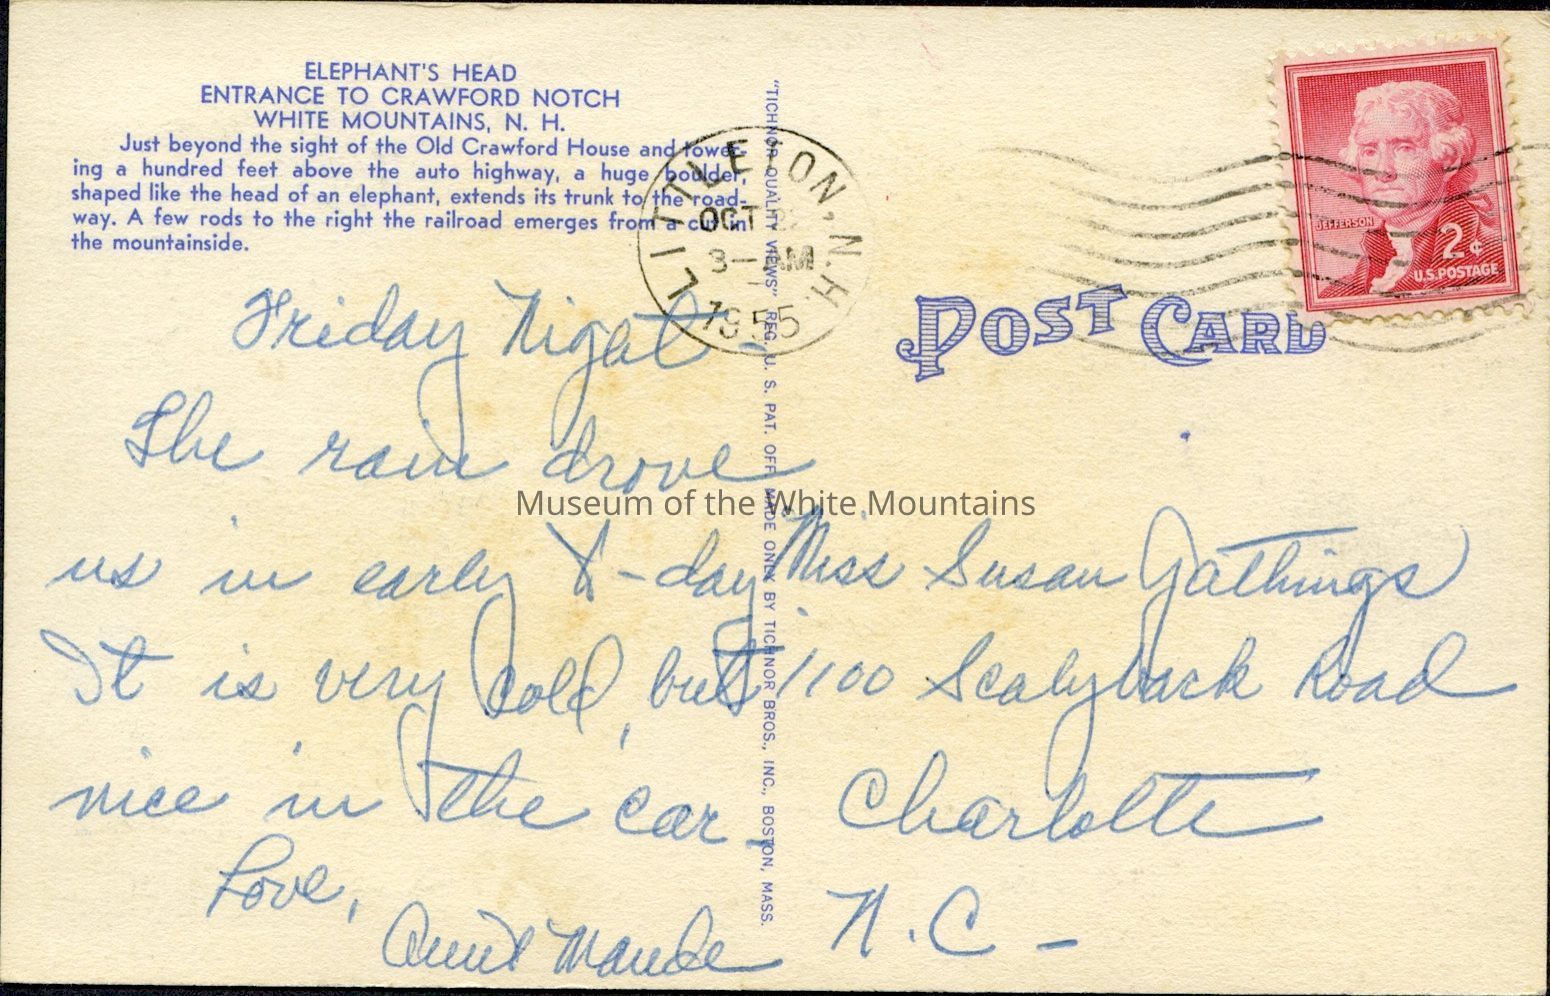 ELEPHANT'S HEAD
ENTRANCE TO CRAWFORD NOTCH
WHITE MOUNTAINS, N. H.
Just beyond the sight of the Old Crawford House and tower-
ing a hundred feet above the auto highway, a huge boulder,
shaped like the head of an elephant, extends its trunk to the road-
way. A few rods to the right the railroad emerges from a cut in
the mountainside.
Friday Night -
The rain drove
us in early X-day
It is very cold, but
nice in the car.
Love,
Aunt Maude
"TICHNOR QUALITY VIEWS" REG. U. S. PAT. OFF. MADE ONLY BY TICHNOR BROS., INC., BOSTON, MASS.
LITTLETON, N.H.
OCT
3 - AM
1955
JEFFERSON
2¢
U.S. POSTAGE
POST CARD
Miss Susan Gathings
1100 Scalyback Road
Charlotte
N.C -
Museum of the White Mountains